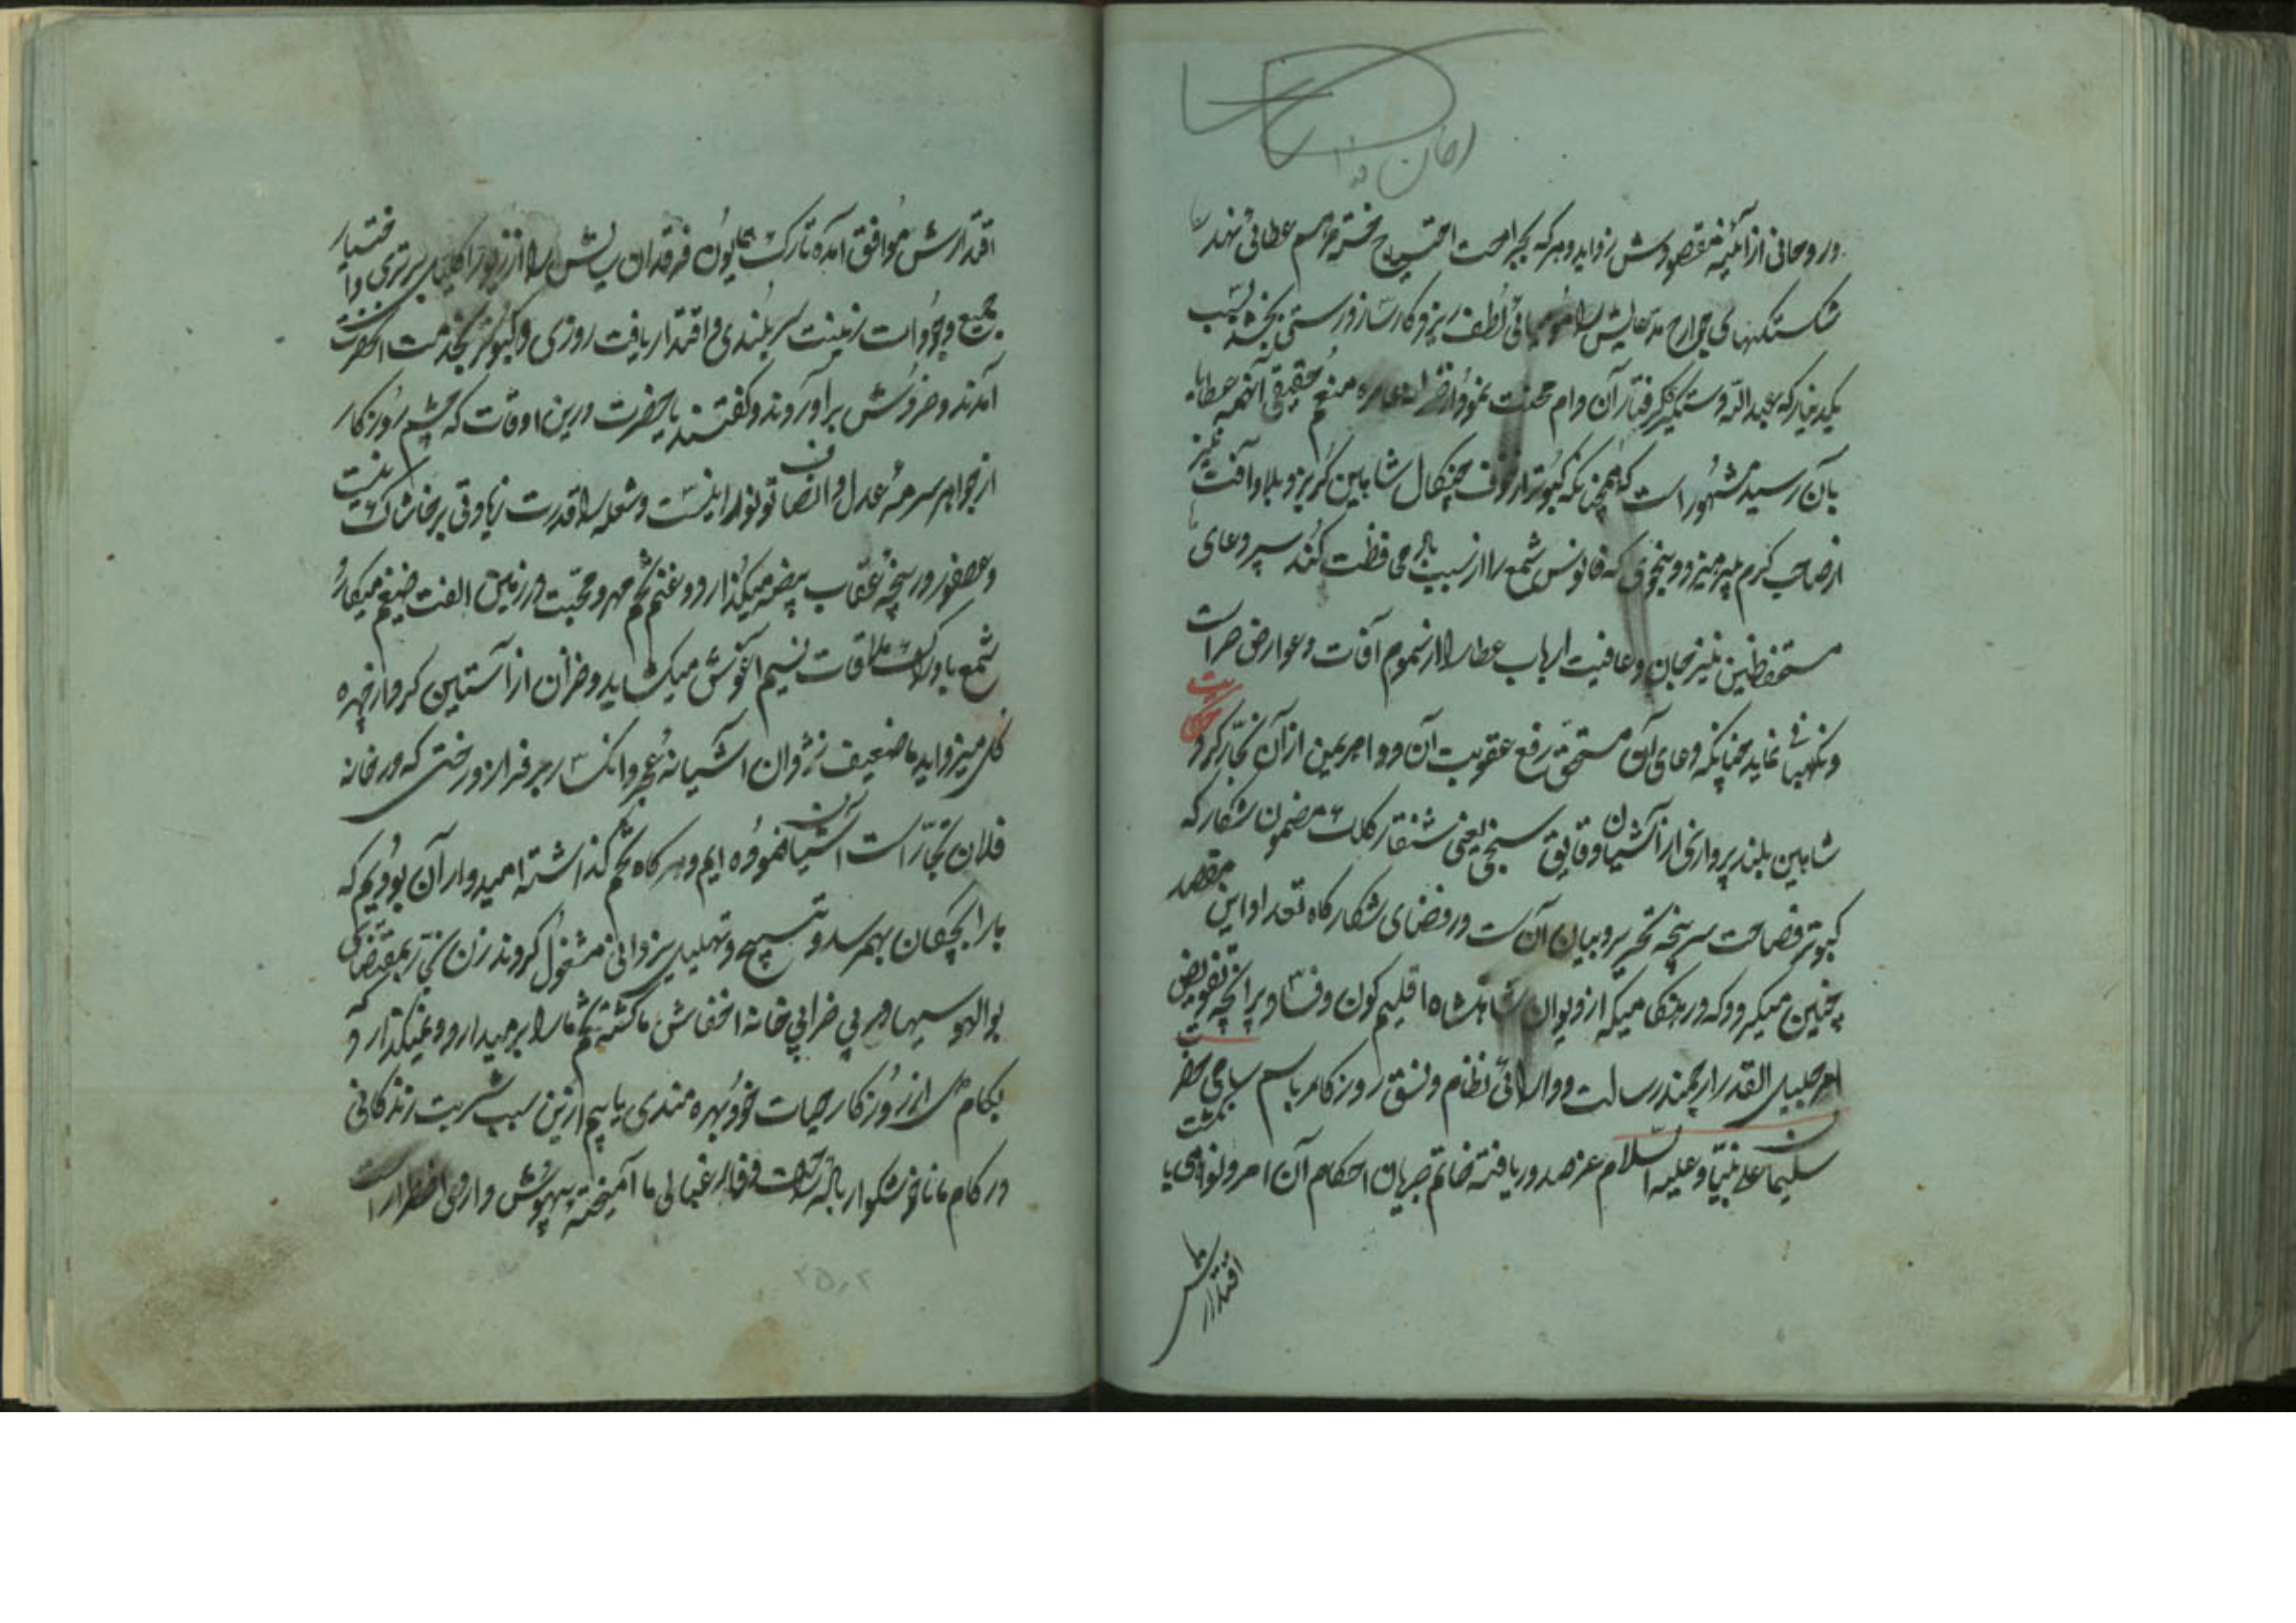 و روحانی از آئینه مقصودش زداید و هر که بجراحت احتیاج خسته مرهم عطائی نهند
شکستگیهای جوارح مدعایش را لطف ریزد کارساز درستی بخشد
یکدینار که عبد الله دستگیر گرفتار آن دام محنت نمود از منعم حقیقی آنهمه عطایا
بآن رسید مشهور است که همچنانکه کبوتر از خوف چنگال شاهین گریزد بلا و آفت نیز
از صاحب کرم پرهیزد و بنحوی که فانوس شمع را از سیب باد محافظت کند سپر دعای
مستحفظین نیز جان و عافیت ارباب عطا را از سموم آفات و عوارض حراست
و نگهبانی نماید چنانکه دعای آن مستحق رفع عقوبت آن دو اهریمن از آن نجار کرد
حکایت
شاهین بلند پروازی از آشیان دقایق سنجی یعنی شنقار کلک مضمون شکار که
کبوتر فصاحت سرپنجه تحریر و بیان آنست در فضای شکارگاه ادا این مقصد
چنین میگیرد که در هنگامیکه از دیوان شاهنشاه اقلیم کون و فساد پرانچه تفویض
امر جلیل القدر ارجمند رسالت و دارائی نظام و نسق روزگار باسم سامی حضرت
سلیمان علی نبینا و علیه السلام عز صدور یافته خاتم جریان احکام آن امر و نواهی با انگشت
اقتدارش
اقتدارش موافق آمده تارک همایون فرقدان سایش را از زیور اکلیل برتری و اختیار
جمیع وجودات زینت سربلندی و اقتدار یافت روزی دو کبوتر بخدمت آنحضرت
آمدند و خروش برآوردند و گفتند یا حضرت درین اوقات که چشم روزگار
از جواهر سرمه عدل و انصاف تو نورانیست و شعله را قدرت زیادتی بر خاشاک نیست
و عصفور در پنجه عقاب بیضه میگذارد و غنم تخم مهر و محبت در زمین الفت ضیغم میکارد
شمع با ادراک ملاقات نسیم آغوش میگشاید و خزان از آستین گرد از چهره
گل میزداید ما ضعیف نژادان آشیانه عجز و انکسار بر فراز درختی که در خانه
فلان نجار است آشیان نموده ایم و هر گاه تخم گذاشته امیدوار آن بودیم که
ما را بچگان بهمرسد و تسبیح و تهلیل یزدانی مشغول گردند زن نجار بمقتضای
بوالهوسیها در پی خرابی خانه اخفاش ما گشته تخم ما را برمیدارد و نمیگذارد که
بکام دل از روزگار حیات خود بهره مندی یابیم ازین سبب شربت زندگانی
در کام ما ناخوشگوار